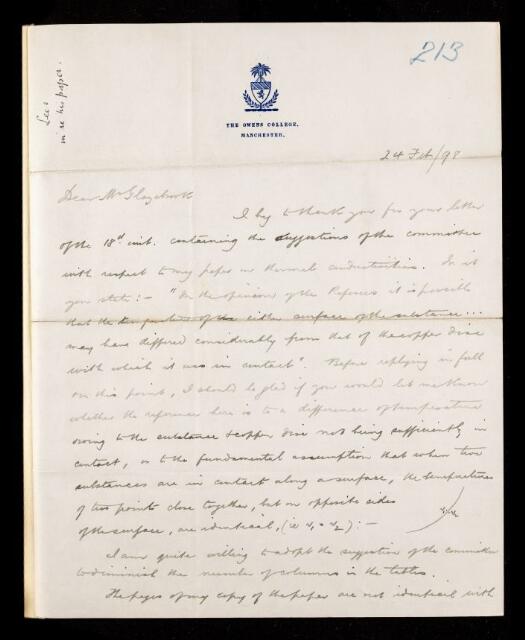 213
Lees
in re his paper.
THE OWENS COLLEGE,
MANCHESTER.
24 Feb/98
Dear Mr Glazebrook
I beg to thank you for your letter
of the 18th inst. containing the suggestions of the committee
with respect to my paper on thermal conductivities. In it
you state:- "In the opinion of the Referees it is possible
that the temperature of the either surface of the substance...
may have differed considerably from that of the copper disc
with which it was in contact". Before replying in full
on this point, I should be glad if you would let me know
whether the reference here is to a difference of temperature
owing to the substance & copper disc not being sufficiently in
contact, or to the fundamental assumption that when two
substances are in contact along a surface, the temperatures
of two points close together, but on opposite sides
of the surface, are identical, (ie v1 = v2):-
I am quite willing to adopt the suggestion of the committee
to diminish the number of columns in the tables.
The pages of my copy of the paper are not identical with